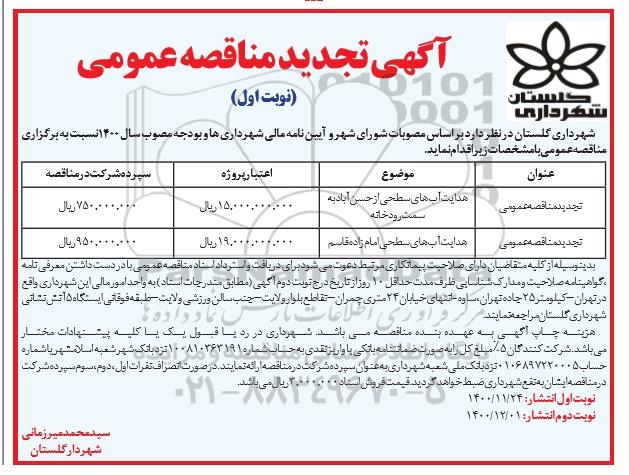 آگهی تجدید مناقصه عمومی
(نوبت اول)
گلستان
شهرداری
شهرداری گلستان در نظر دارد بر اساس مصوبات شورای شهر و آیین نامه مالی شهرداری ها و بودجه مصوب سال ۱۴۰۰ نسبت به برگزاری
مناقصه عمومی با مشخصات زیر اقدام نماید.
عنوان موضوع اعتبار پروژه سپرده شرکت در مناقصه
تجدید مناقصه عمومی هدایت آب های سطحی از حسن آباد به سمت رودخانه ۱۵.۰۰۰.۰۰۰.۰۰۰ ریال ۷۵۰.۰۰۰.۰۰۰ ریال
تجدید مناقصه عمومی هدایت آب های سطحی امام زاده قاسم ۱۹.۰۰۰.۰۰۰.۰۰۰ ریال ۹۵۰.۰۰۰.۰۰۰ ریال
بدینوسیله از کلیه متقاضیان دارای صلاحیت پیمانکاری مرتبط دعوت می شود برای دریافت و استرداد اسناد مناقصه عمومی با در دست داشتن معرفی نامه
، گواهینامه صلاحیت و مدارک شناسایی ظرف مدت حداقل ۱۰ روز از تاریخ درج نوبت دوم آگهی (مطابق مندرجات اسناد) به واحد امور مالی این شهرداری واقع
در تهران – کیلومتر ۲۵ جاده تهران، ساوه – انتهای خیابان ۲۴ متری چمران – تقاطع بلوار ولایت – جنب سالن ورزشی ولایت – طبقه فوقانی ایستگاه ۵ آتش نشانی
شهرداری گلستان مراجعه نمایند.
هزینه چاپ آگهی به عهده برنده مناقصه می باشد. شهرداری در رد یا قبول یک یا کلیه پیشنهادات مختار
می باشد. شرکت کنندگان ۵٪ مبلغ کل را به صورت ضمانتنامه بانکی یا واریز نقدی به حساب شماره ۱۰۰۸۱۰۳۶۳۱۹۱ نزد بانک شهر شعبه اسلامشهر یا شماره
حساب ۰۱۰۶۸۹۷۲۲۰۰۰۵ نزد بانک ملی شعبه شهرداری به عنوان سپرده شرکت در مناقصه ارائه نمایند. در صورت انصراف نفرات اول، دوم، سوم سپرده شرکت
در مناقصه ایشان به نفع شهرداری ضبط خواهد گردید. قیمت فروش اسناد ۳.۰۰۰.۰۰۰ ریال می باشد.
نوبت اول انتشار: ۱۴۰۰/۱۱/۲۴
نوبت دوم انتشار: ۱۴۰۰/۱۲/۰۱
سید محمد میرزمانی
شهردار گلستان
۰۲۱-۸۸۳۴۹۶۷۰-۵